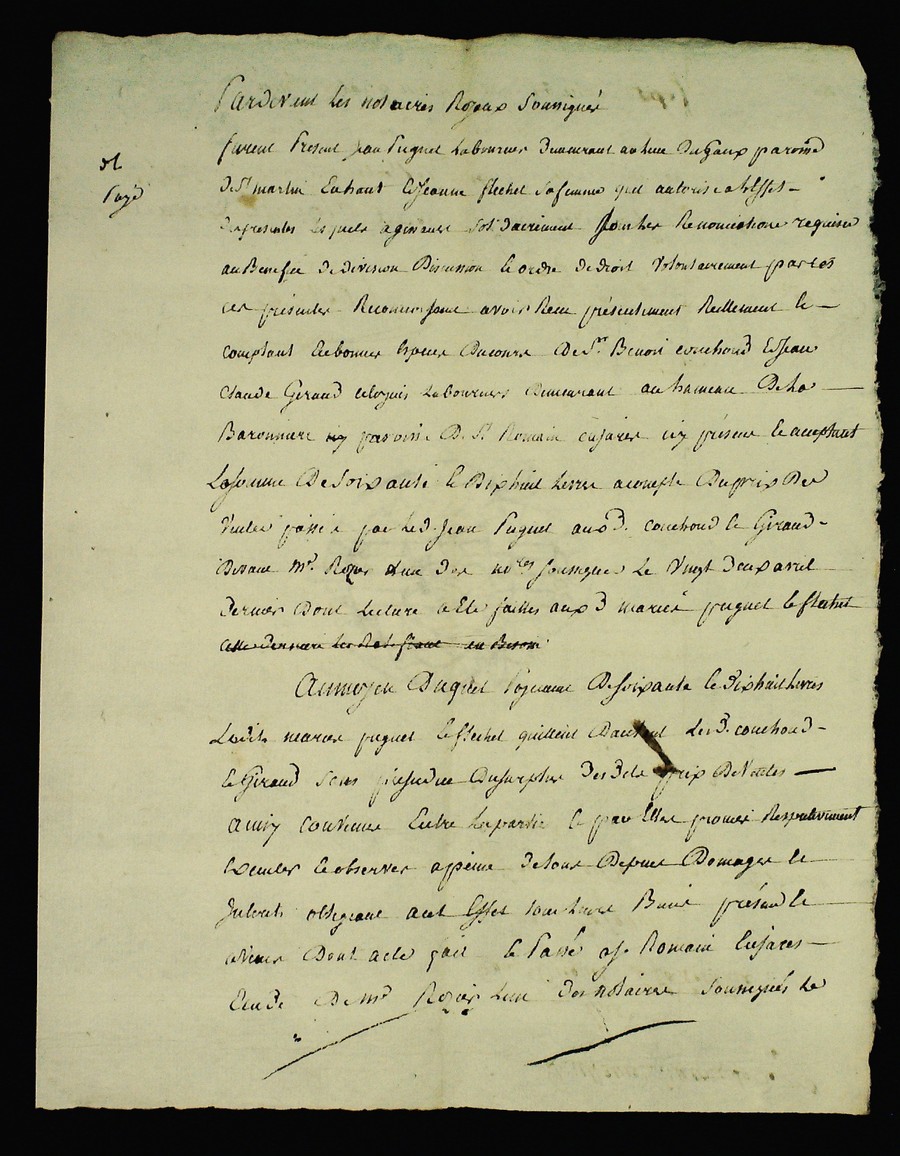 Pardevent les notaires Royaux soussignés
furent present jean Puguet Laboureur demeurant au lieu du paroisse
de St martin en haut & Jeanne flechet sa femme quil autorise a leffet
des presentes lesquels agissant solidairement sous les Renonciations requises
au Benefice de division Discussion & ordre de droit volontairement par ces
ces présentes Reconnoissent avoir Receu présentement Reellement &
comptant en bonnes espèces ducours De Sr Benoit couchoud & Jean
Claude Giraud citoyens Laboureurs demeurant au hameau De la
Baronniere paroisse De St Romain en jarez icy présens & acceptant
La somme De Soixante & Dixhuit livres acompte Du prix Des
ventes passée par Led. Jean Puguet auxd. couchoud & Giraud
devant Me. Rozier Lun des nores soussignés Le Vingt deux avril
dernier Dont lecture a été faittes aux d mariés puguet & flechet
cette derniere
Aumoyen Duquel Payement De soixante & dixhuit livres
Lesdits mariés puguet & flechet quittent Dautant Lesd. couchoud
& Giraud sans préjudice du surplus desdits prix De Ventes
Ainsy convenu Entre les parties & par Elles promis Respectivement
Executer & observer appeine de tous Depens Domages &
Interets obligeant acet Effet tous leurs Biens présens &
avenir Dont acte fait & Passé a St Romain en jares
Etude De Me Rozier Lun des notaires soussignés Le
Payé